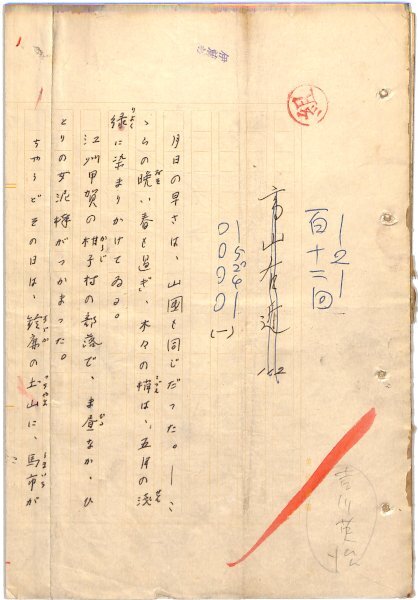 121
百十二回
高山右近
112
01
05
024
01
(一)
吉川英治
月日の早さは、山國も同じだった。――こ
ゝらの晩い春も過ぎ、木々の梢は、五月の淺
緑に染まりかけてゐる。
江州甲賀の柑子村の部落で、ま昼なか、ひ
とりの女泥棒がつかまった。
ちやうどその日は、鈴鹿の土山に、馬市が